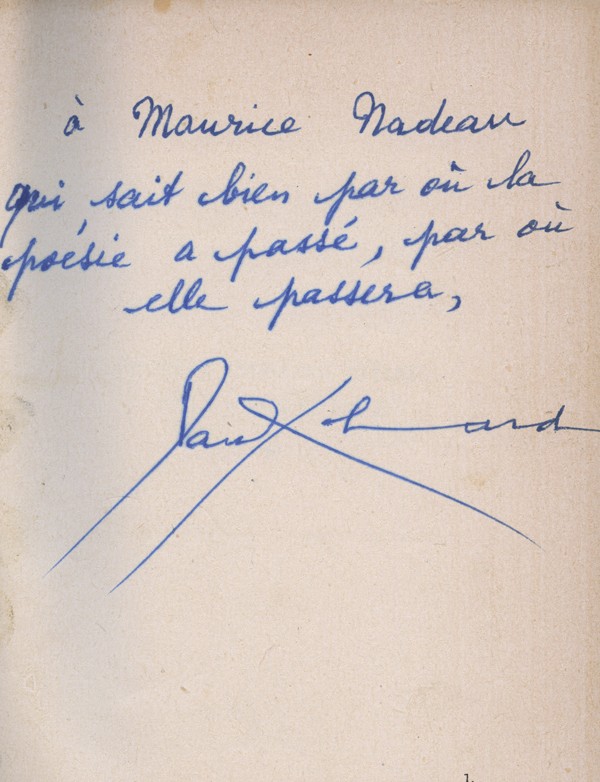 à Maurice Nadeau
qui sait bien par où la
poésie a passé, par où
elle passera,
Paul Eluard
1.